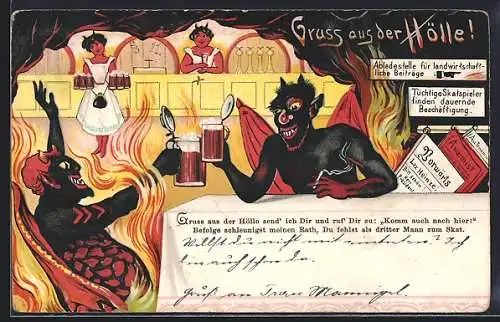 Gruss aus der Hölle!
Abladestelle für landwirtschaft-
liche Beiträge
Tüchtige Skatspieler
finden dauernde
Beschäftigung.
Vorwärts
Gruss aus der Hölle send' ich Dir und ruf' Dir zu: „Komm auch nach hier!"
Befolge schleunigst meinen Rath, Du fehlst als dritter Mann zum Skat.
Willst du nicht mit Ich
bin auch schon da.
Gruß an Frau